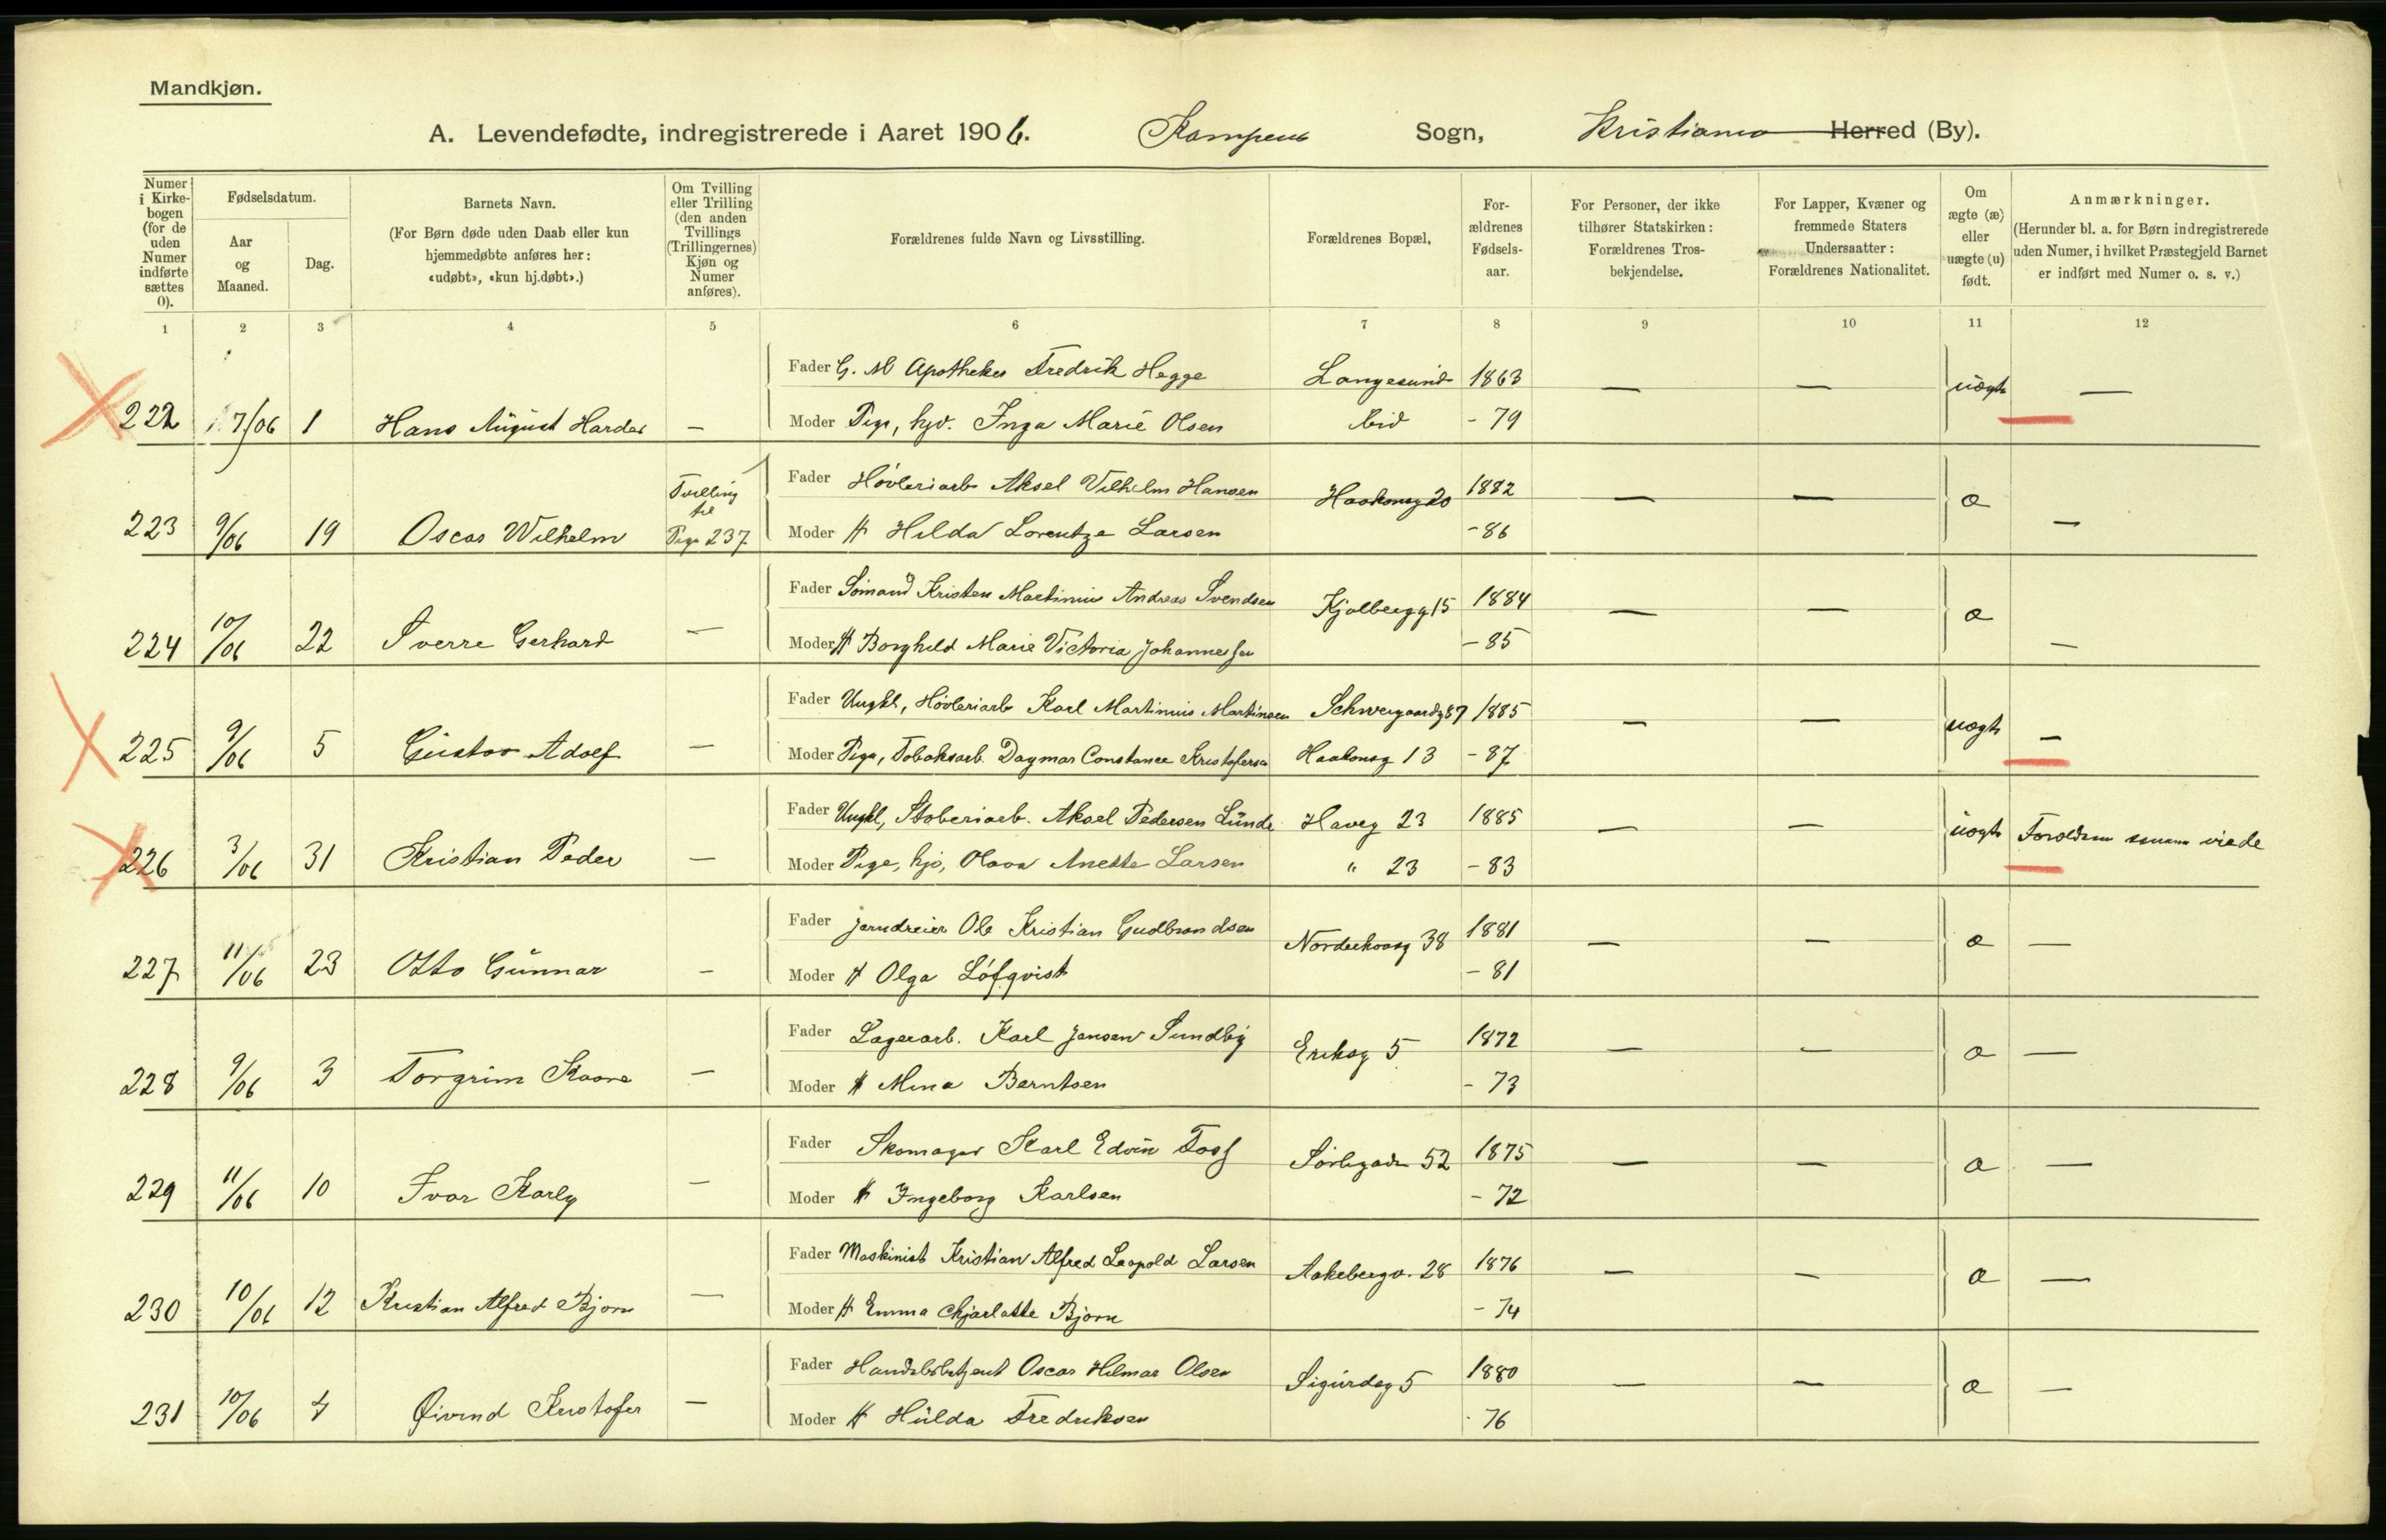 Mandkjøn.
A. Levendefødte, indregistrerede i Aaret 1906. Kampens Sogn, Kristiania Herred (By).
Numer i Kirke-bogen (for de uden Numer indførte sættes 0).
Fødselsdatum.
Aar og Maaned.
Dag.
Barnets Navn.
(For Børn døde uden Daab eller kun hjemmedøbte anføres her: «udøbt», «kun hj.døbt».)
Om Tvilling eller Trilling (den anden Tvillings (Trillingernes) Kjøn og Numer anføres).
Forældrenes fulde Navn og Livsstilling.
Forældrenes Bopæl,
For-ældrenes Fødsels-aar.
For Personer, der ikke tilhører Statskirken: Forældrenes Tros-bekjendelse.
For Lapper, Kvæner og fremmede Staters Undersaatter: Forældrenes Nationalitet.
Om ægte (æ) eller uægte (u) født.
Anmærkninger.
(Herunder bl. a. for Børn indregistrerede uden Numer, i hvilket Præstegjeld Barnet er indført med Numer o. s. v.)
1 2 3 4 5 6 7 8 9 10 11 12
Fader G. M Apotheker Fredrik Hegge Langesund 1863 — — uægte —
222 7/06 1 Hans August Harder — Moder Pige, hjv. Inga Marie Olsen ibid - 79
Fader Høvleriarb Aksel Vilhelm Hansen Haakonsg 20 1882 — — æ —
223 9/06 19 Oscar Wilhelm Tvilling til Pige 237 Moder H Hilda Lorentze Larsen - 86
Fader Sømand Kristen Martinius Andreas Svendsen Kjølbergg 15 1884 — — æ —
224 10/06 22 Sverre Gerhard — Moder H Borghild Marie Victoria Johannessen - 85
Fader Ungkl, Høvleriarb Karl Martinius Martinsen Schweigaardsg 87 1885 — — uægte —
225 9/06 5 Gustav Adolf — Moder Pige, Tobaksarb. Dagmar Constance Kristofersen Haakonsg 13 - 87
Fader Ungkl, Støberiarb. Aksel Pedersen Lunde Haveg 23 1885 — — uægte Forældrene senere viede
226 3/06 31 Kristian Peder — Moder Pige, hjv, Olava Anette Larsen " 23 - 83
Fader Jerndreier Ole Kristian Gudbrandsen Norderhovsg 38 1881 — — æ —
227 11/06 23 Otto Gunnar — Moder H Olga Löfqvist - 81
Fader Lagerarb. Karl Jensen Sundby Eriksg 5 1872 — — æ —
228 9/06 3 Torgrim Kaare — Moder H Mina Berntsen - 73
Fader Skomager Karl Edvin Toof Sørligaden 52 1875 — — æ —
229 11/06 10 Ivar Karly — Moder H Ingeborg Karlsen - 72
Fader Maskinist Kristian Alfred Leopold Larsen Aakebergv. 28 1876 — — æ —
230 10/06 12 Kristian Alfred Bjørn — Moder H Emma Chjarlotte Bjørn - 74
Fader Handelsbetjent Oscar Hilmar Olsen Sigurdsg 5 1880 — — æ —
231 10/06 4 Øivind Kristofer — Moder H Hulda Fredriksen 76